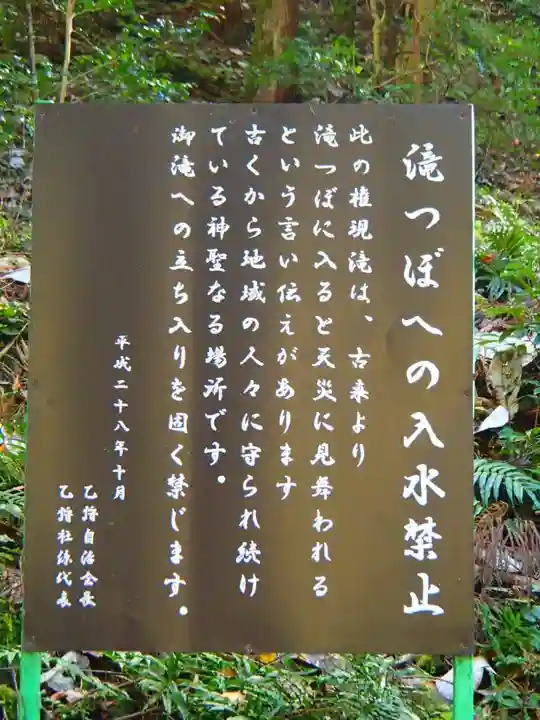 滝つぼへの入水禁止
此の権現滝は、古来より
滝つぼに入ると天災に見舞われる
という言い伝えがあります
古くから地域の人々に守られ続け
ている神聖なる場所です。
御滝への立ち入りを固く禁じます。
平成二十八年十月
乙狩自治会長
乙狩社総代長